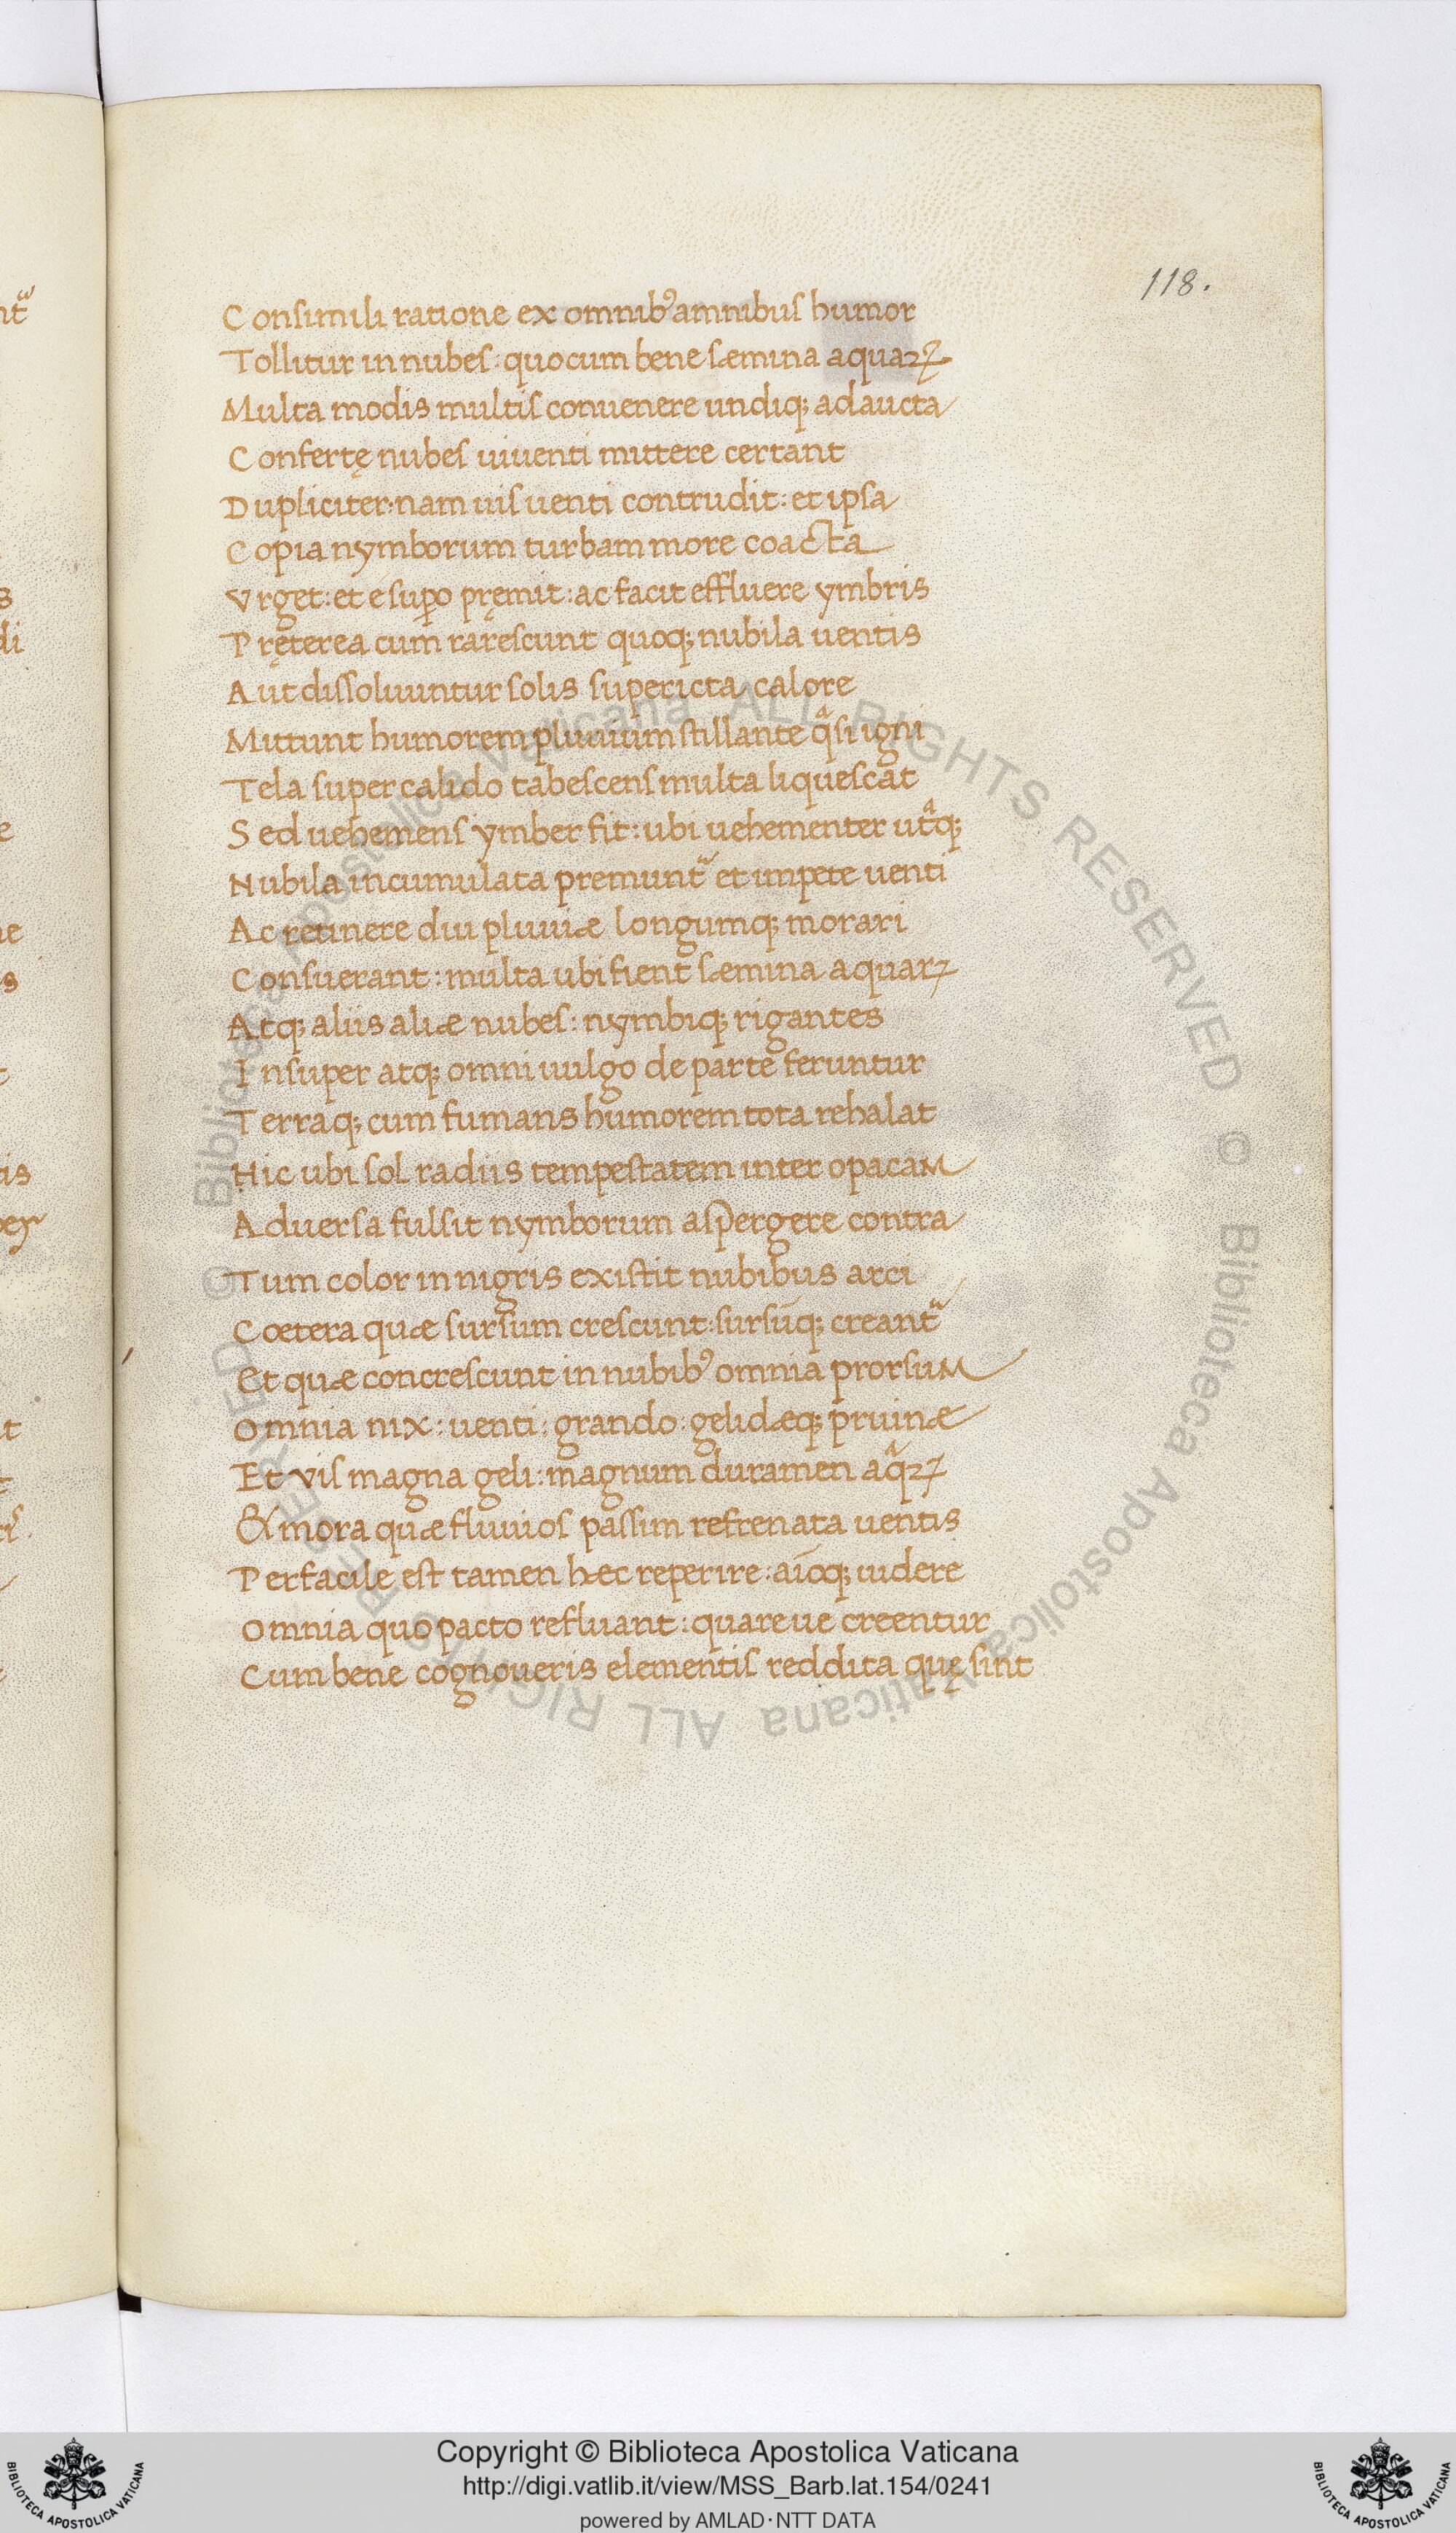 118.
Consimili ratione ex omnib⁹ amnibus humor
Tollitur in nubes: quo cum bene sæmina aquaꝝ
Multa modis multis conuenere undiq; adaucta
Confertę nubes ui uenti mittere certant
Dupliciter: nam uis uenti contrudit: et ipsa
Copia nymborum turbam more coacta
Vrget: et e suꝑo pręmit: ac facit effluere ymbris
Pręterea cum rarescunt quoq; nubila uentis
Aut dissoluuntur solis super icta calore
Mittunt humorem pluuium stillante qᵃsi igni
Tela super calido tabescens multa liquescat
Sed uehemens ymber fit: ubi uehementer utᵃq;
Nubila in cumulata premunt᷑ et impete uenti
Ac retinere diu pluuiæ longumq; morari
Consuerant: multa ubi fient sæmina aquaꝝ
Atq; aliis aliæ nubes: nymbiq; rigantes
Insuper atq; omni uulgo de parte feruntur
Terraq; cum fumans humorem tota rehalat
Hic ubi sol radiis tempestatem inter opacam
Aduersa fulsit nymborum aspergere contra
Tum color in nigris existit nubibus arci
Cœtera quæ sursum crescunt: sursūq; creant᷑
Et quæ concrescunt in nubib⁹ omnia prorsum
Omnia nix: uenti: grando: gelidæq; pruinæ
Et vis magna geli: magnum duramen aqᵃꝝ
Et mora quæ fluuios passim refrenata uentis
Perfacile est tamen hæc reperire: aīoq; uidere
Omnia quo pacto refluant: quare ue creentur
Cum bene cognoueris elementis reddita quę sint
Copyright © Biblioteca Apostolica Vaticana
http://digi.vatlib.it/view/MSS_Barb.lat.154/0241
powered by AMLAD·NTT DATA